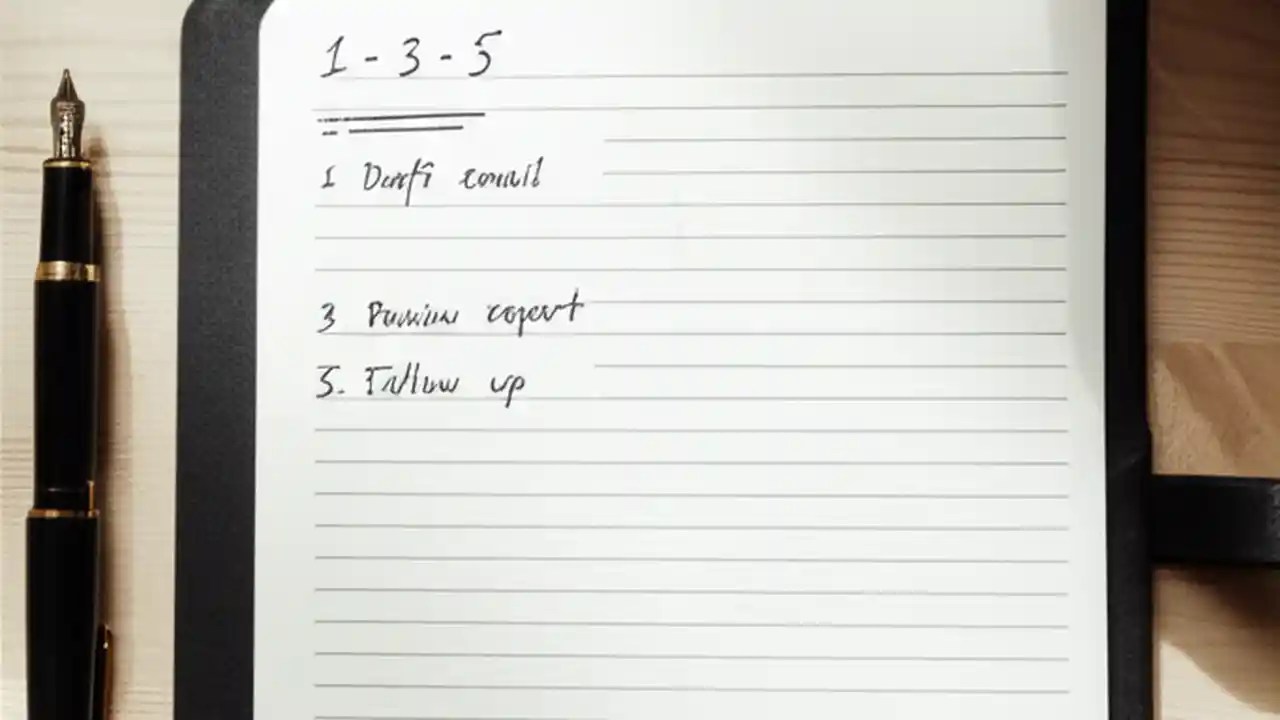 1 - 3 - 5
1 Draft email
3 Review report
5. Follow up